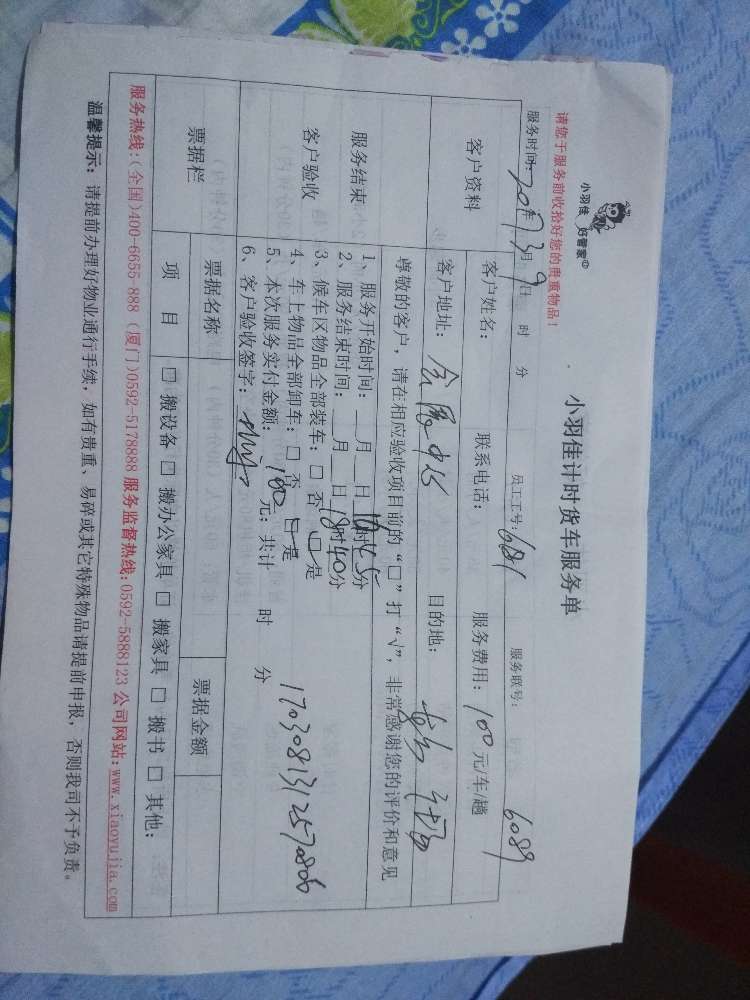 小羽佳 好管家
小羽佳计时货车服务单
请您于服务前收拾好您的贵重物品！
服务时间: 2017年3月9日 时 分 员工工号: 681 服务联号: 6089
客户资料
客户姓名: 联系电话: 服务费用: 100元/车/趟
客户地址: 目的地:
服务结束
客户验收
尊敬的客户，请在相应验收项目前的“□”打“√”，非常感谢您的评价和意见
1、服务开始时间: __月__日 17时45分
2、服务结束时间: __月__日 18时40分
3、候车区物品全部装车: □ 否 □ 是
4、车上物品全部卸车: □ 否 □ 是
5、本次服务实付金额: 100 元; 共计 时 分
6、客户验收签字:
1703081312570806
票据栏
票据名称 票据金额
项 目 □ 搬设备 □ 搬办公家具 □ 搬家具 □ 搬书 □ 其他:
服务热线:(全国)400-6655 888 (厦门)0592-5178888 服务监督热线:0592-5888123 公司网站:www.xiaoyujia.com
温馨提示: 请提前办理好物业通行手续, 如有贵重、易碎或其它特殊物品请提前申报, 否则我司不予负责。